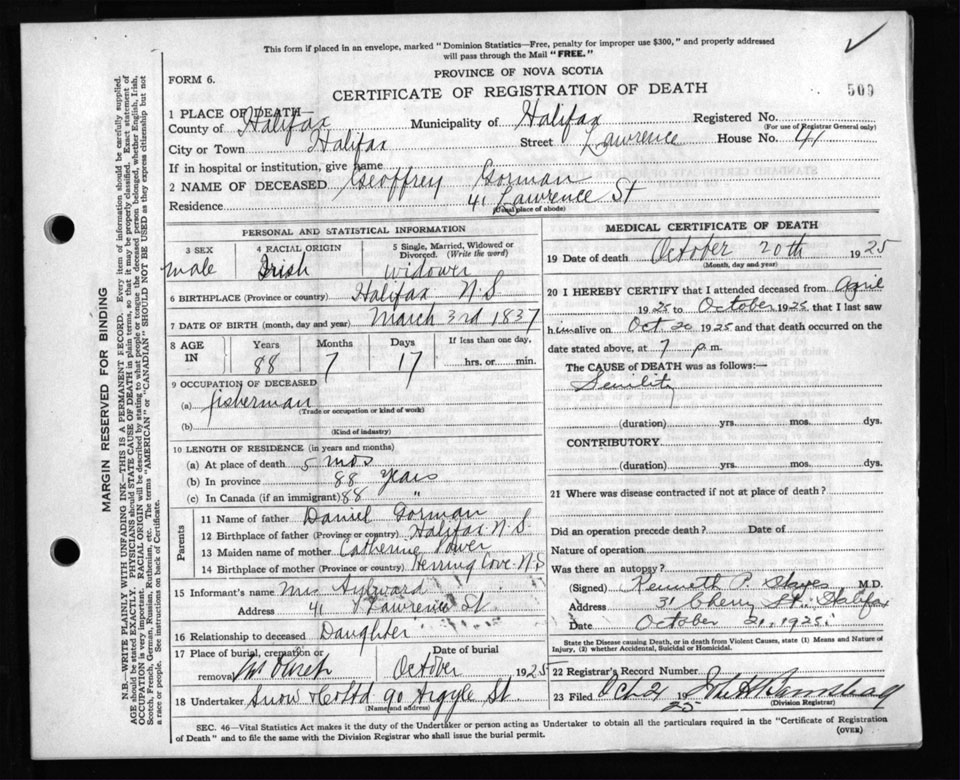 This form if placed in an envelope, marked "Dominion Statistics—Free, penalty for improper use $300," and properly addressed
will pass through the Mail "FREE."
PROVINCE OF NOVA SCOTIA
FORM 6.
CERTIFICATE OF REGISTRATION OF DEATH
509
1 PLACE OF DEATH—
County of Halifax Municipality of Halifax Registered No.
(For use of Registrar General only)
City or Town Halifax Street Lawrence House No. 41
If in hospital or institution, give name
2 NAME OF DECEASED Geoffrey Gorman
Residence 41 Lawrence St
(Usual place of abode)
PERSONAL AND STATISTICAL INFORMATION
3 SEX
male
4 RACIAL ORIGIN
Irish
5 Single, Married, Widowed or
Divorced. (Write the word)
widower
6 BIRTHPLACE (Province or country) Halifax N.S
7 DATE OF BIRTH (month, day and year) March 3rd 1837
8 AGE IN
Years Months Days If less than one day,
88 7 17 hrs. or min.
9 OCCUPATION OF DECEASED
(a) fisherman
(Trade or occupation or kind of work)
(b)
(Kind of industry)
10 LENGTH OF RESIDENCE (in years and months)
(a) At place of death 5 mos
(b) In province 88 years
(c) In Canada (if an immigrant) 88 "
Parents
11 Name of father Daniel Gorman
12 Birthplace of father (Province or country) Halifax N.S.
13 Maiden name of mother Catherine Power
14 Birthplace of mother (Province or country) Herring Cove N.S
15 Informant's name Mrs Aylward
Address 41 Lawrence St.
16 Relationship to deceased Daughter
17 Place of burial, cremation or removal Date of burial
October 1925
18 Undertaker Snow & Co Ltd 90 Argyle St.
(Name and address)
MEDICAL CERTIFICATE OF DEATH
19 Date of death October 20th 1925
(Month, day and year)
20 I HEREBY CERTIFY that I attended deceased from April
1925 to October 1925 that I last saw
him alive on Oct 20 1925 and that death occurred on the
date stated above, at 7 p.m.
The CAUSE of DEATH was as follows:—
Senility
(duration) yrs. mos. dys.
CONTRIBUTORY
(duration) yrs. mos. dys.
21 Where was disease contracted if not at place of death?
Did an operation precede death? Date of
Nature of operation
Was there an autopsy?
(Signed) Kenneth P. Hayes M.D.
Address 31 Cherry St. Halifax
Date October 21, 1925.
State the Disease causing Death, or in death from Violent Causes, state (1) Means and Nature of
Injury, (2) whether Accidental, Suicidal or Homicidal.
22 Registrar's Record Number
23 Filed Oct 21 1925
(Division Registrar)
SEC. 46—Vital Statistics Act makes it the duty of the Undertaker or person acting as Undertaker to obtain all the particulars required in the "Certificate of Registration
of Death" and to file the same with the Division Registrar who shall issue the burial permit.
(OVER)
MARGIN RESERVED FOR BINDING
N.B.—WRITE PLAINLY WITH UNFADING INK—THIS IS A PERMANENT RECORD. Every item of information should be carefully supplied.
AGE should be stated EXACTLY. PHYSICIANS should STATE CAUSE OF DEATH in plain terms, so that it may be properly classified. Exact statement of
OCCUPATION is very important. RACIAL ORIGIN will be described by stating to what people or tongue the deceased person belonged, whether English, Irish,
Scotch, French, German, Russian, Ruthenian, etc. The terms "AMERICAN" or "CANADIAN" SHOULD NOT BE USED as they express citizenship but not
a race or people. See instructions on back of Certificate.